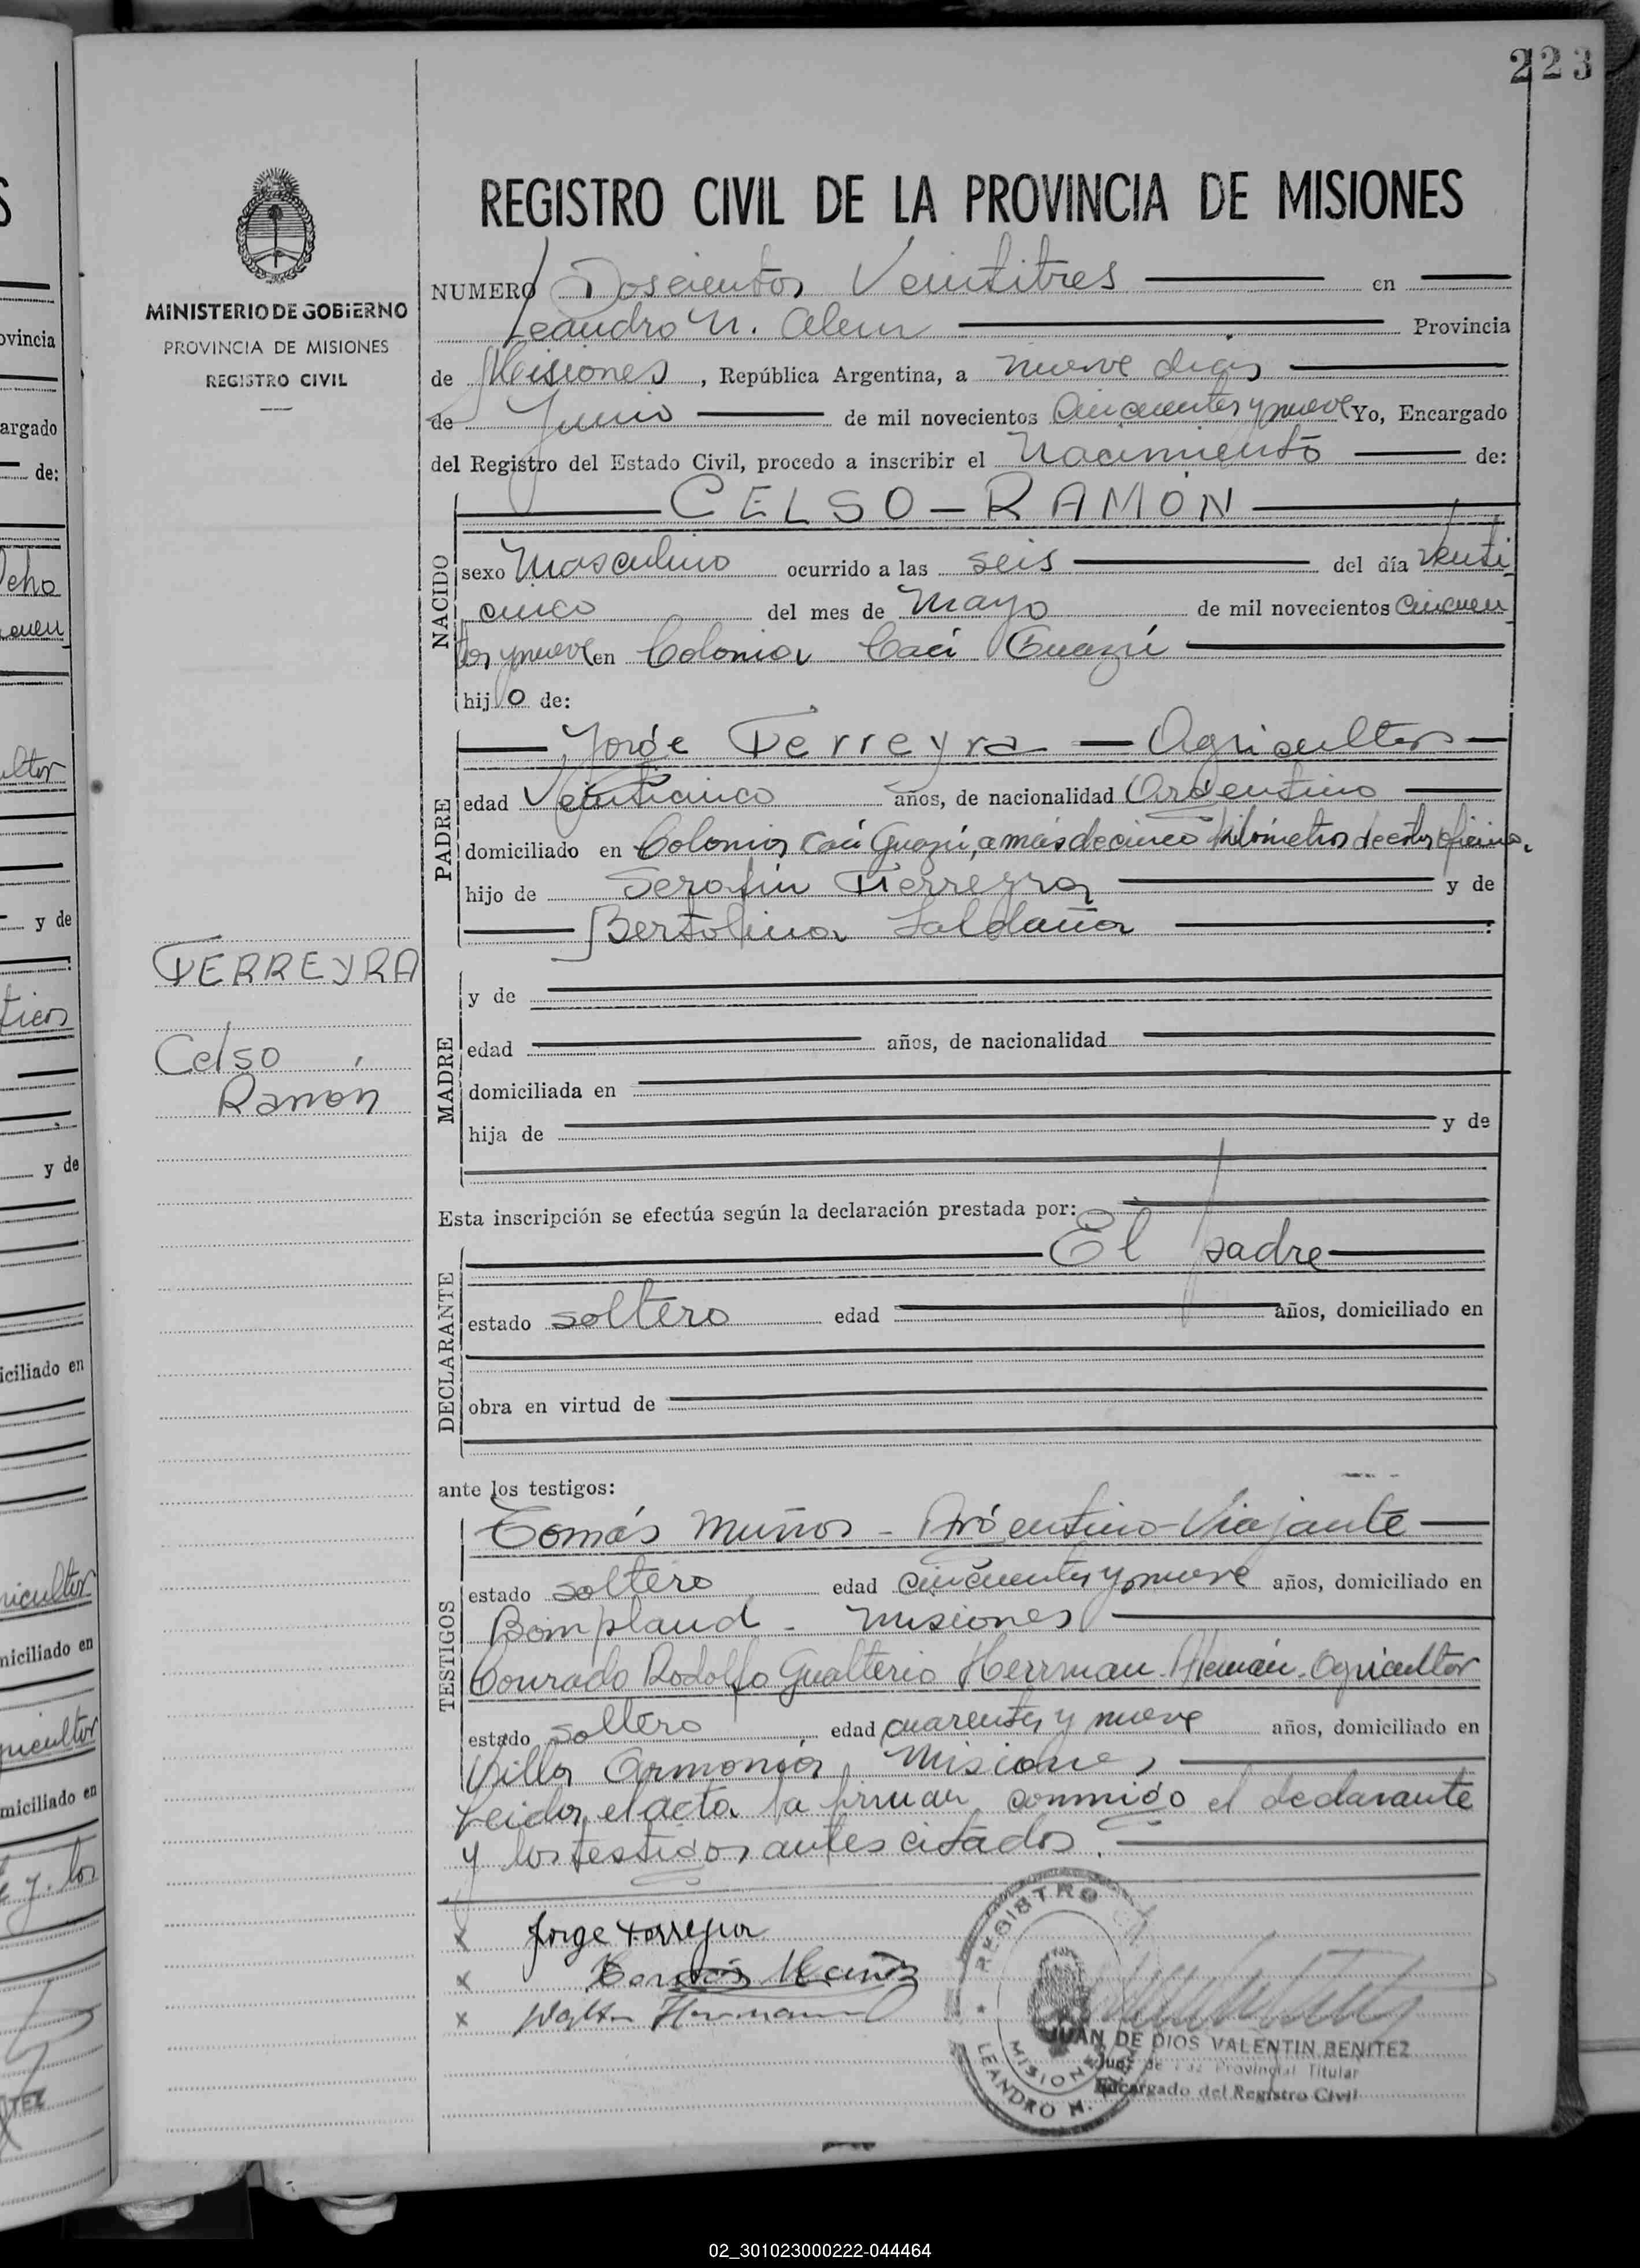 223
REGISTRO CIVIL DE LA PROVINCIA DE MISIONES
MINISTERIO DE GOBIERNO
PROVINCIA DE MISIONES
REGISTRO CIVIL
NUMERO Doscientos Veintitres en
Leandro N. Alem Provincia
de Misiones, República Argentina, a nueve dias
de Junio de mil novecientos Cincuenta y nueve Yo, Encargado
del Registro del Estado Civil, procedo a inscribir el Nacimiento de:
NACIDO
CELSO - RAMÓN
sexo Masculino ocurrido a las seis del día Venti
cinco del mes de Mayo de mil novecientos Cincuen
ta y nueve en Colonia Caá Guazú
hijo de:
PADRE
Jorge Ferreyra - Agricultor
edad Veinticinco años, de nacionalidad Argentino
domiciliado en Colonia Caá Guazú, a más de cinco kilómetros de esta oficina.
hijo de Serafin Fierreyra y de
Bertolina Saldaña :
FERREYRA
Celso
Ramón
MADRE
y de
edad años, de nacionalidad
domiciliada en
hija de y de
Esta inscripción se efectúa según la declaración prestada por:
DECLARANTE
El padre
estado soltero edad años, domiciliado en
obra en virtud de
ante los testigos:
TESTIGOS
Tomás Muños - Argentino - Viajante
estado soltero edad cincuenta y nueve años, domiciliado en
Bompland - Misiones
Conrado Rodolfo Gualterio Herrman - Alemán - Agricultor
estado soltero edad cuarenta y nueve años, domiciliado en
Villa Armonía Misiones
Leida el acta la firman conmigo el declarante
y los testigos antes citados.
x Jorge Ferreyra
x Tomás Muñoz
x Walter Herrmann
REGISTRO
MISIONES
LEANDRO N.
JUAN DE DIOS VALENTIN BENITEZ
Juez de Paz Provincial Titular
Encargado del Registro Civil
ovincia
argado
de:
Ocho
cuen
ultor
y de
y de
iciliado en
ricultor
niciliado en
ricultor
miciliado en
y los
TEZ
02_301023000222-044464